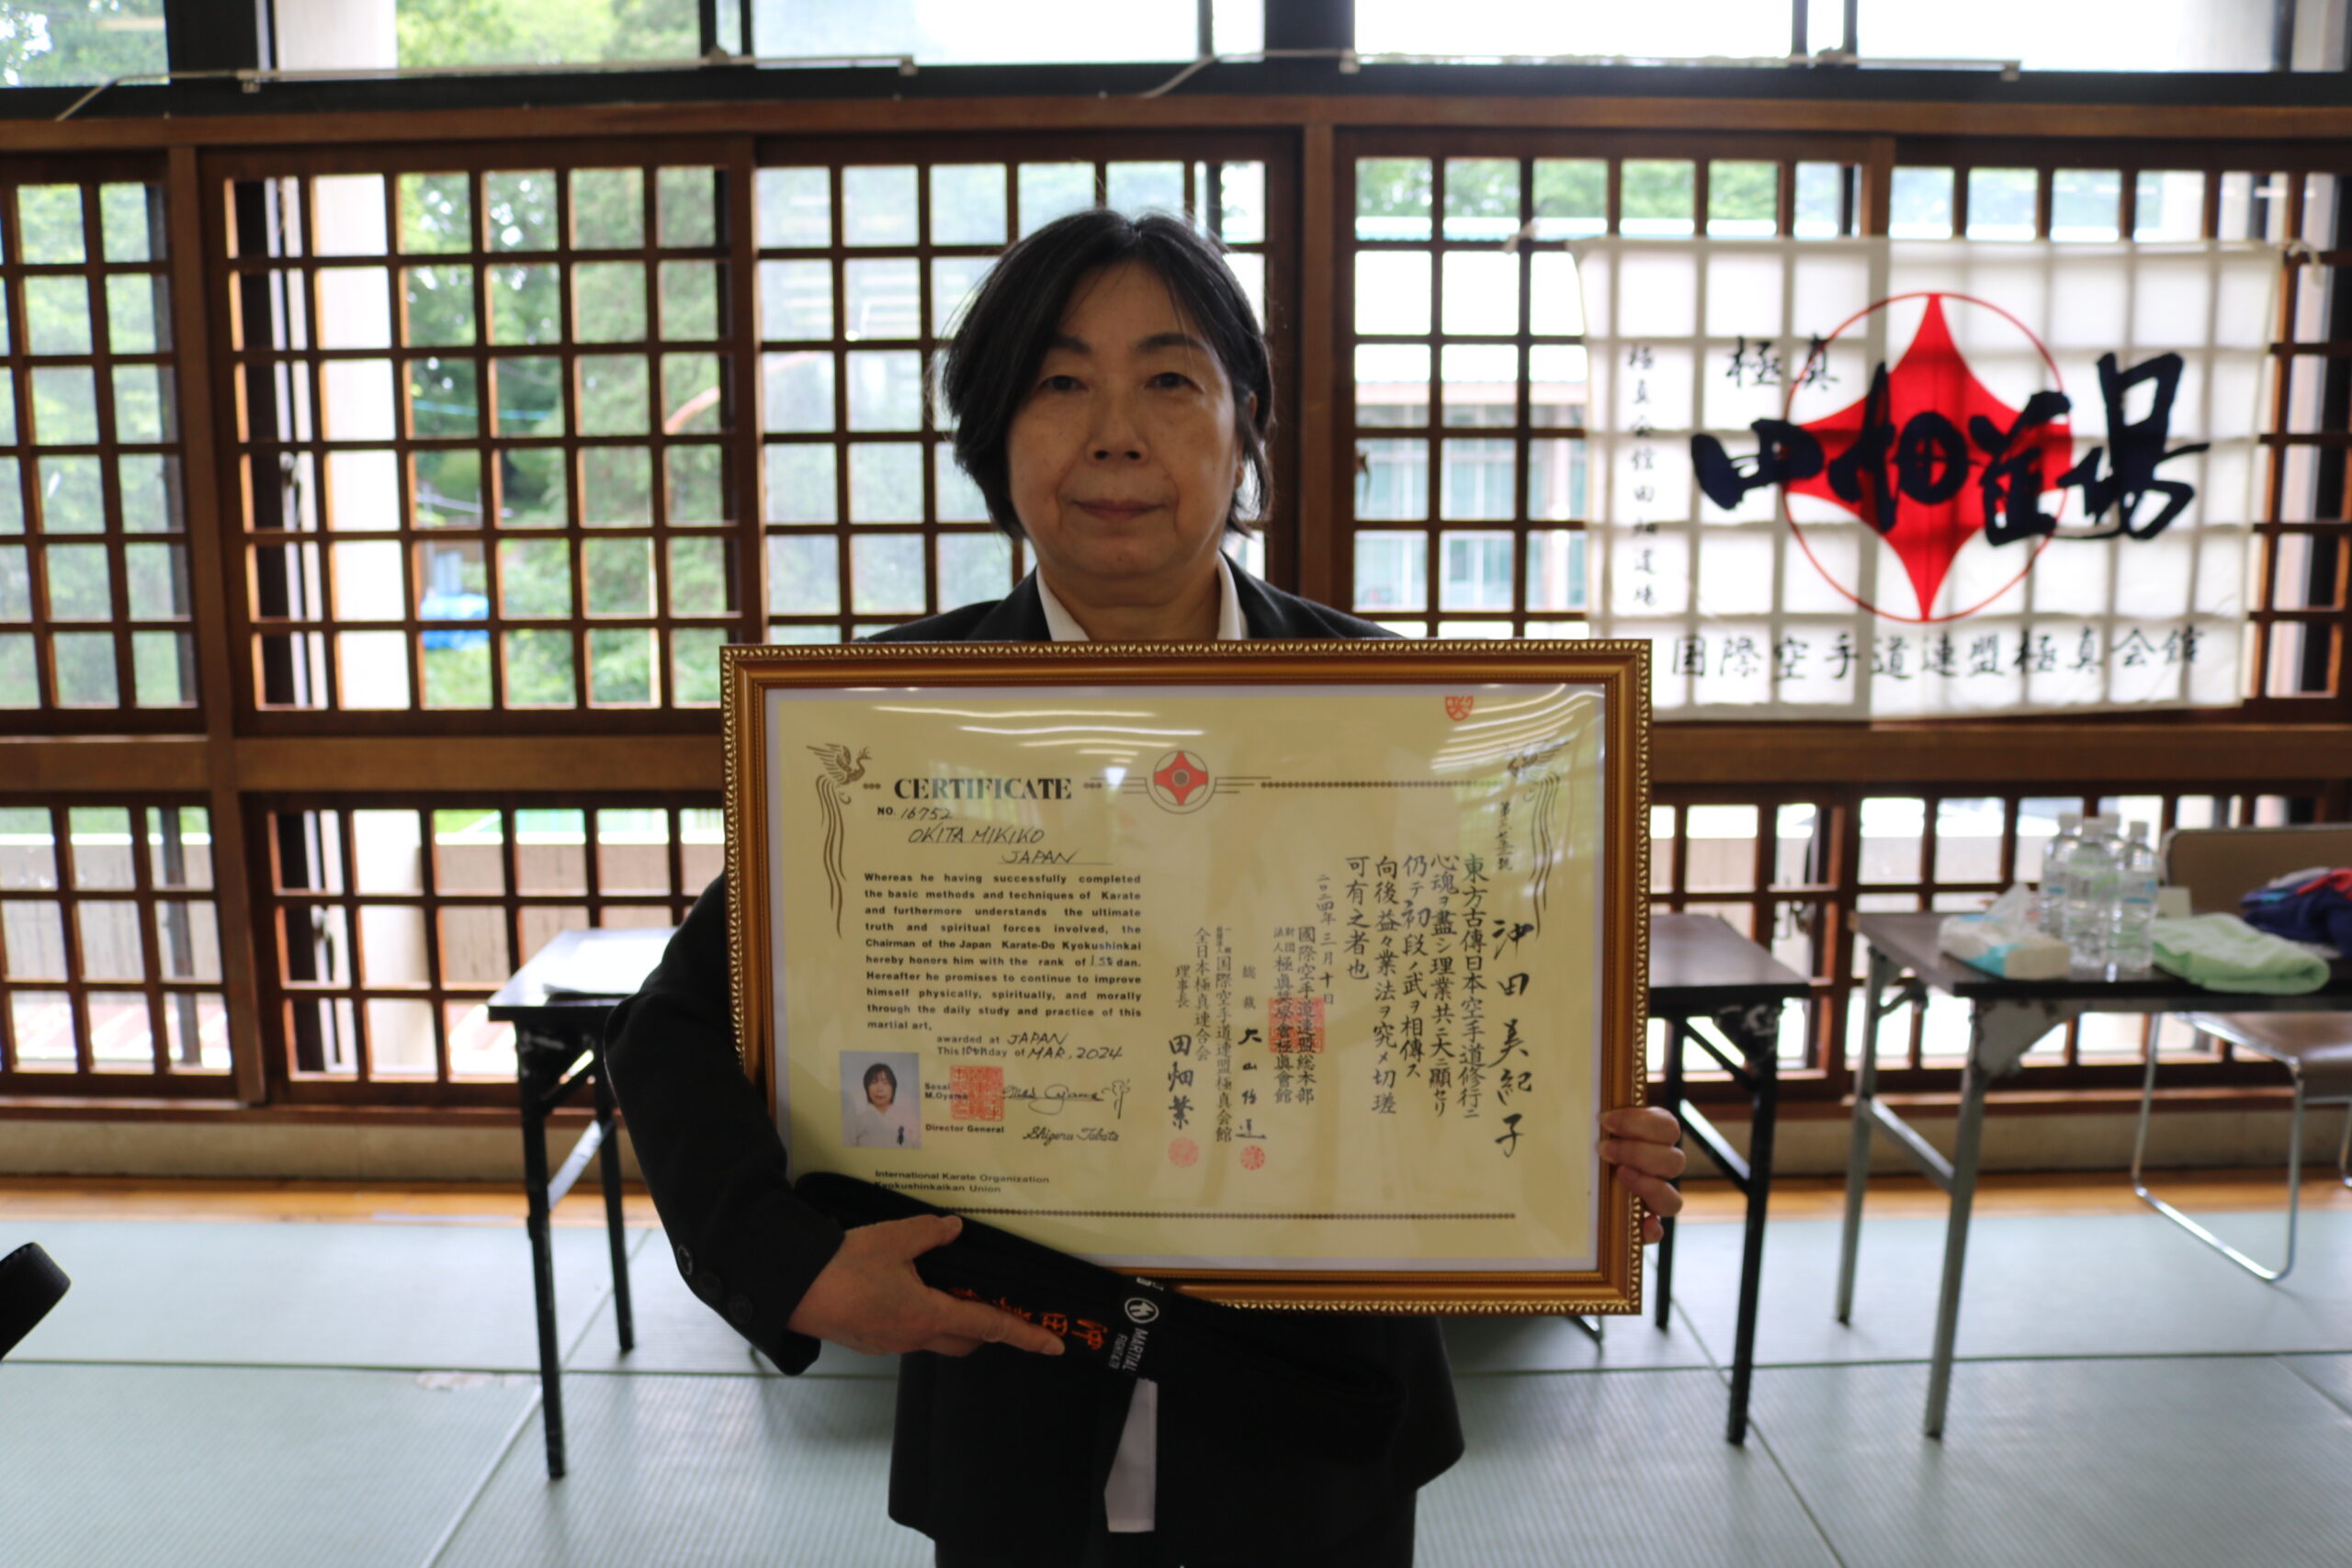 極真
田畑道場
極真会館田畑道場
国際空手道連盟極真会館
CERTIFICATE
NO. 16752
OKITA MIKIKO
JAPAN
Whereas he having successfully completed
the basic methods and techniques of Karate
and furthermore understands the ultimate
truth and spiritual forces involved, the
Chairman of the Japan Karate-Do Kyokushinkai
hereby honors him with the rank of 1st dan.
Hereafter he promises to continue to improve
himself physically, spiritually, and morally
through the daily study and practice of this
martial art,
awarded at JAPAN
This 10th day of MAR, 2024
Sosai
M.Oyama
Mas Oyama
Director General
Shigeru Tabata
International Karate Organization
Kyokushinkaikan Union
沖田美紀子
東方古傳日本空手道修行ニ
心魂ヲ盡シ理業共ニ大ニ顯セリ
仍テ初段ノ武ヲ相傳ス
向後益々業法ヲ究メ切瑳
可有之者也
二〇二四年三月十日
國際空手道連盟総本部
財団法人極眞奨學會極眞會館
総裁 大山倍達
国際空手道連盟極真会館
全日本極真連合会
理事長 田畑繁
沖田
MARTIAL